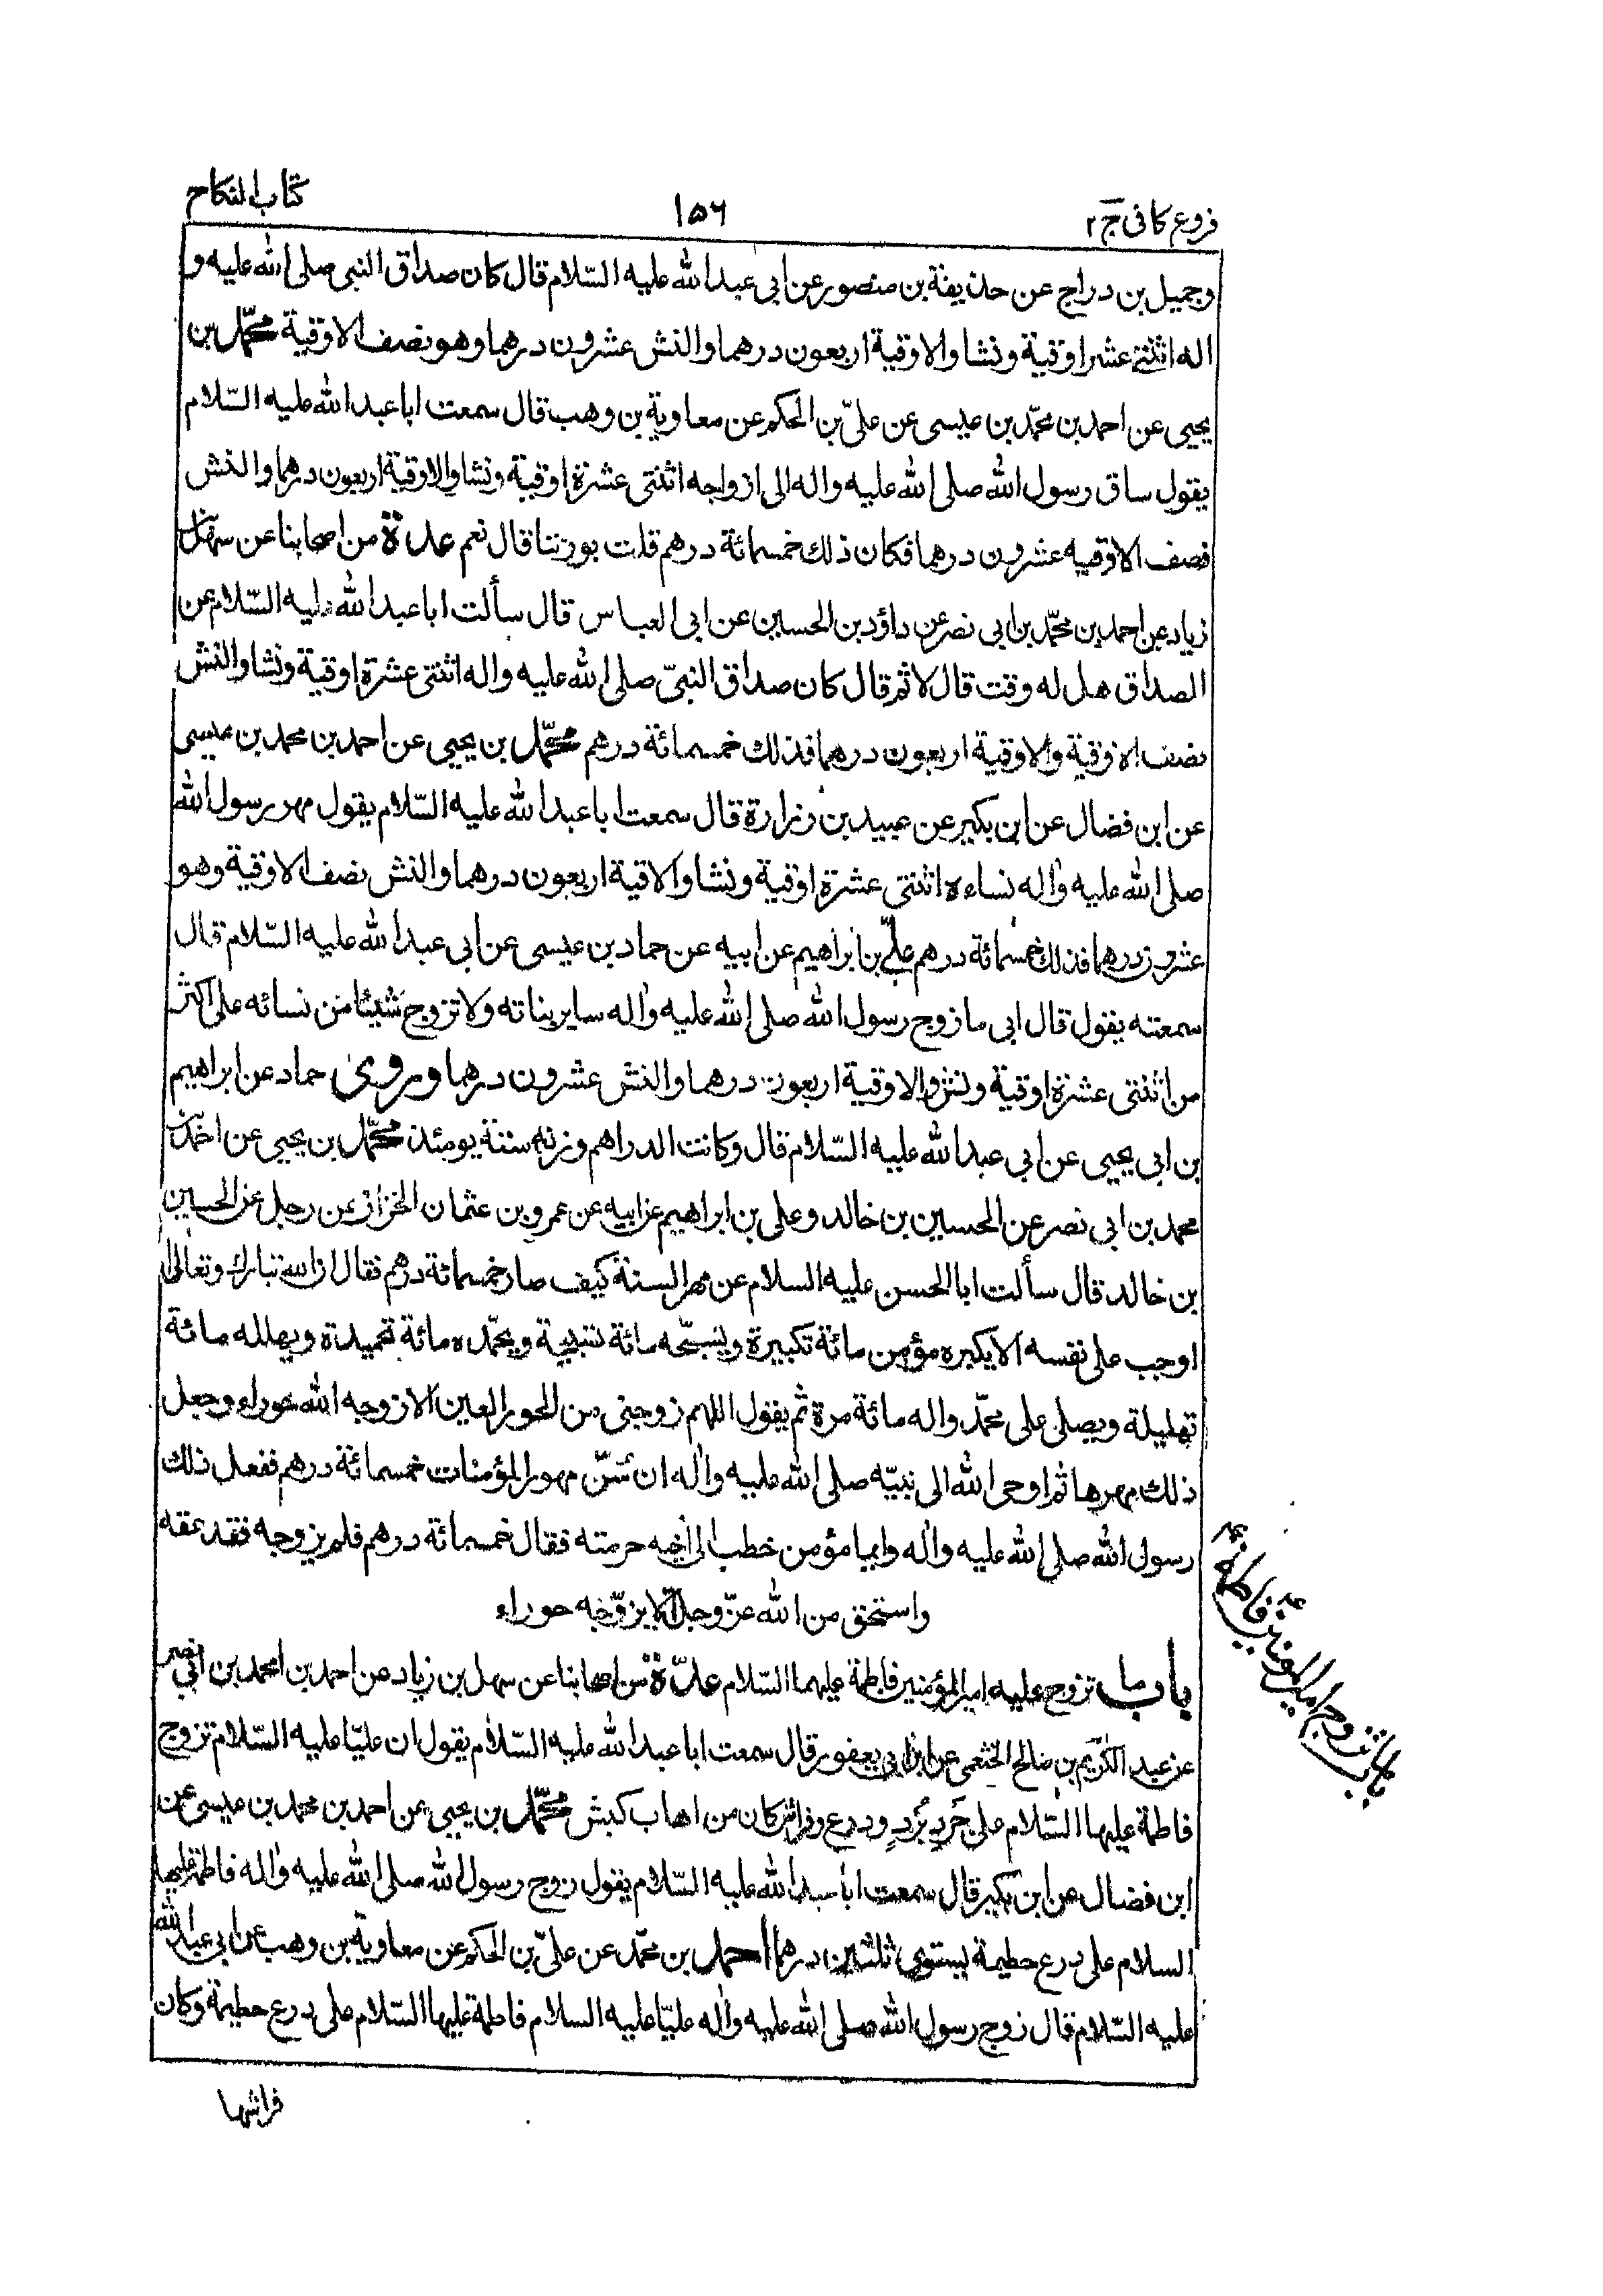 فروع كافى ج ٢
١٥٦
كتاب النكاح
وجميل بن دراج عن حذيفة بن منصور عن ابى عبد الله عليه السّلام قال كان صداق النبى صلى الله عليه و
اله اثنتى عشر اوقية ونشا والاوقية اربعون درهما والنش عشرون درهما وهو نصف الاوقية محمّد بن
يحيى عن احمد بن محمّد بن عيسى عن علىّ بن الحكم عن معاوية بن وهب قال سمعت ابا عبد الله عليه السّلام
يقول ساق رسول الله صلى الله عليه واله الى ازواجه اثنتى عشرة اوقية ونشا والاوقية اربعون درهما والنش
نصف الاوقيه عشرون درهما فكان ذلك خمسمائة درهم قلت بوزننا قال نعم عدة من اصحابنا عن سهل بن
زياد عن احمد بن محمّد بن ابى نصر عن داؤد بن الحسين عن ابى العباس قال سألت ابا عبد الله عليه السّلام عن
الصداق هل له وقت قال لا ثم قال كان صداق النبىّ صلى الله عليه واله اثنتى عشرة اوقية ونشا والنش
نصف الاوقية والاوقية اربعون درهما فذلك خمسمائة درهم محمّد بن يحيى عن احمد بن محمد بن عيسى
عن ابن فضال عن ابن بكير عن عبيد بن زرارة قال سمعت ابا عبد الله عليه السّلام يقول مهر رسول الله
صلى الله عليه واله نساءه اثنتى عشرة اوقية ونشا والاقية اربعون درهما والنش نصف الاوقية وهو
عشرون درهما فذلك خمسمائة درهم علىّ بن ابراهيم عن ابيه عن حماد بن عيسى عن ابى عبد الله عليه السّلام قال
سمعته يقول قال ابى ما زوج رسول الله صلى الله عليه واله ساير بناته ولا تزوج شيئا من نسائه على اكثر
من اثنتى عشرة اوقية ونش والاوقية اربعون درهما والنش عشرون درهما وروى حماد عن ابراهيم
بن ابى يحيى عن ابى عبد الله عليه السّلام قال وكانت الدراهم وزن ستة يومئذ محمّد بن يحيى عن احمد بن
محمد بن ابى نصر عن الحسين بن خالد وعلى بن ابراهيم عن ابيه عن عمرو بن عثمان الخزاز عن رجل عن الحسين
بن خالد قال سألت ابا الحسن عليه السلام عن مهر السنة كيف صار خمسمائة درهم فقال ان الله تبارك وتعالى
اوجب على نفسه الا يكبره مؤمن مائة تكبيرة ويسبّحه مائة تسبيحة ويحمّده مائة تحميدة ويهلله مائة
تهليلة ويصلى على محمّد واله مائة مرة ثم يقول اللهم زوجنى من الحور العين الا زوجه الله حوراء وجعل
ذلك مهرها ثم اوحى الله الى نبيّه صلى الله عليه واله ان سنّ مهور المؤمنات خمسمائة درهم ففعل ذلك
رسول الله صلى الله عليه واله وايما مؤمن خطب الى اخيه حرمته فقال خمسمائة درهم فلم يزوجه فقد عقه
واستحق من الله عزّ وجل الا يزوّجه حوراء
باب ما تزوج عليه امير المؤمنين فاطمة عليهما السّلام عدّة من اصحابنا عن سهل بن زياد عن احمد بن محمد بن ابى نصر
عن عبد الكريم بن صالح الخثعمى عن ابن ابى يعفور قال سمعت ابا عبد الله عليه السّلام يقول ان عليّا عليه السّلام تزوج
فاطمة عليها السّلام على جَردِ بُردٍ ودرع وفراش كان من اهاب كبش محمّد بن يحيى عن احمد بن محمد بن عيسى عن
ابن فضال عن ابن بكير قال سمعت ابا عبد الله عليه السّلام يقول زوج رسول الله صلى الله عليه واله فاطمة عليها
السلام على درع حطيمة يستوى ثلثين درهما احمد بن محمّد عن علىّ بن الحكم عن معاوية بن وهب عن ابى عبد الله
عليه السّلام قال زوج رسول الله صلى الله عليه واله عليّا عليه السلام فاطمة عليها السّلام على درع حطيمة وكان
فراشها
باب ما تزوج امير المؤمنين فاطمة